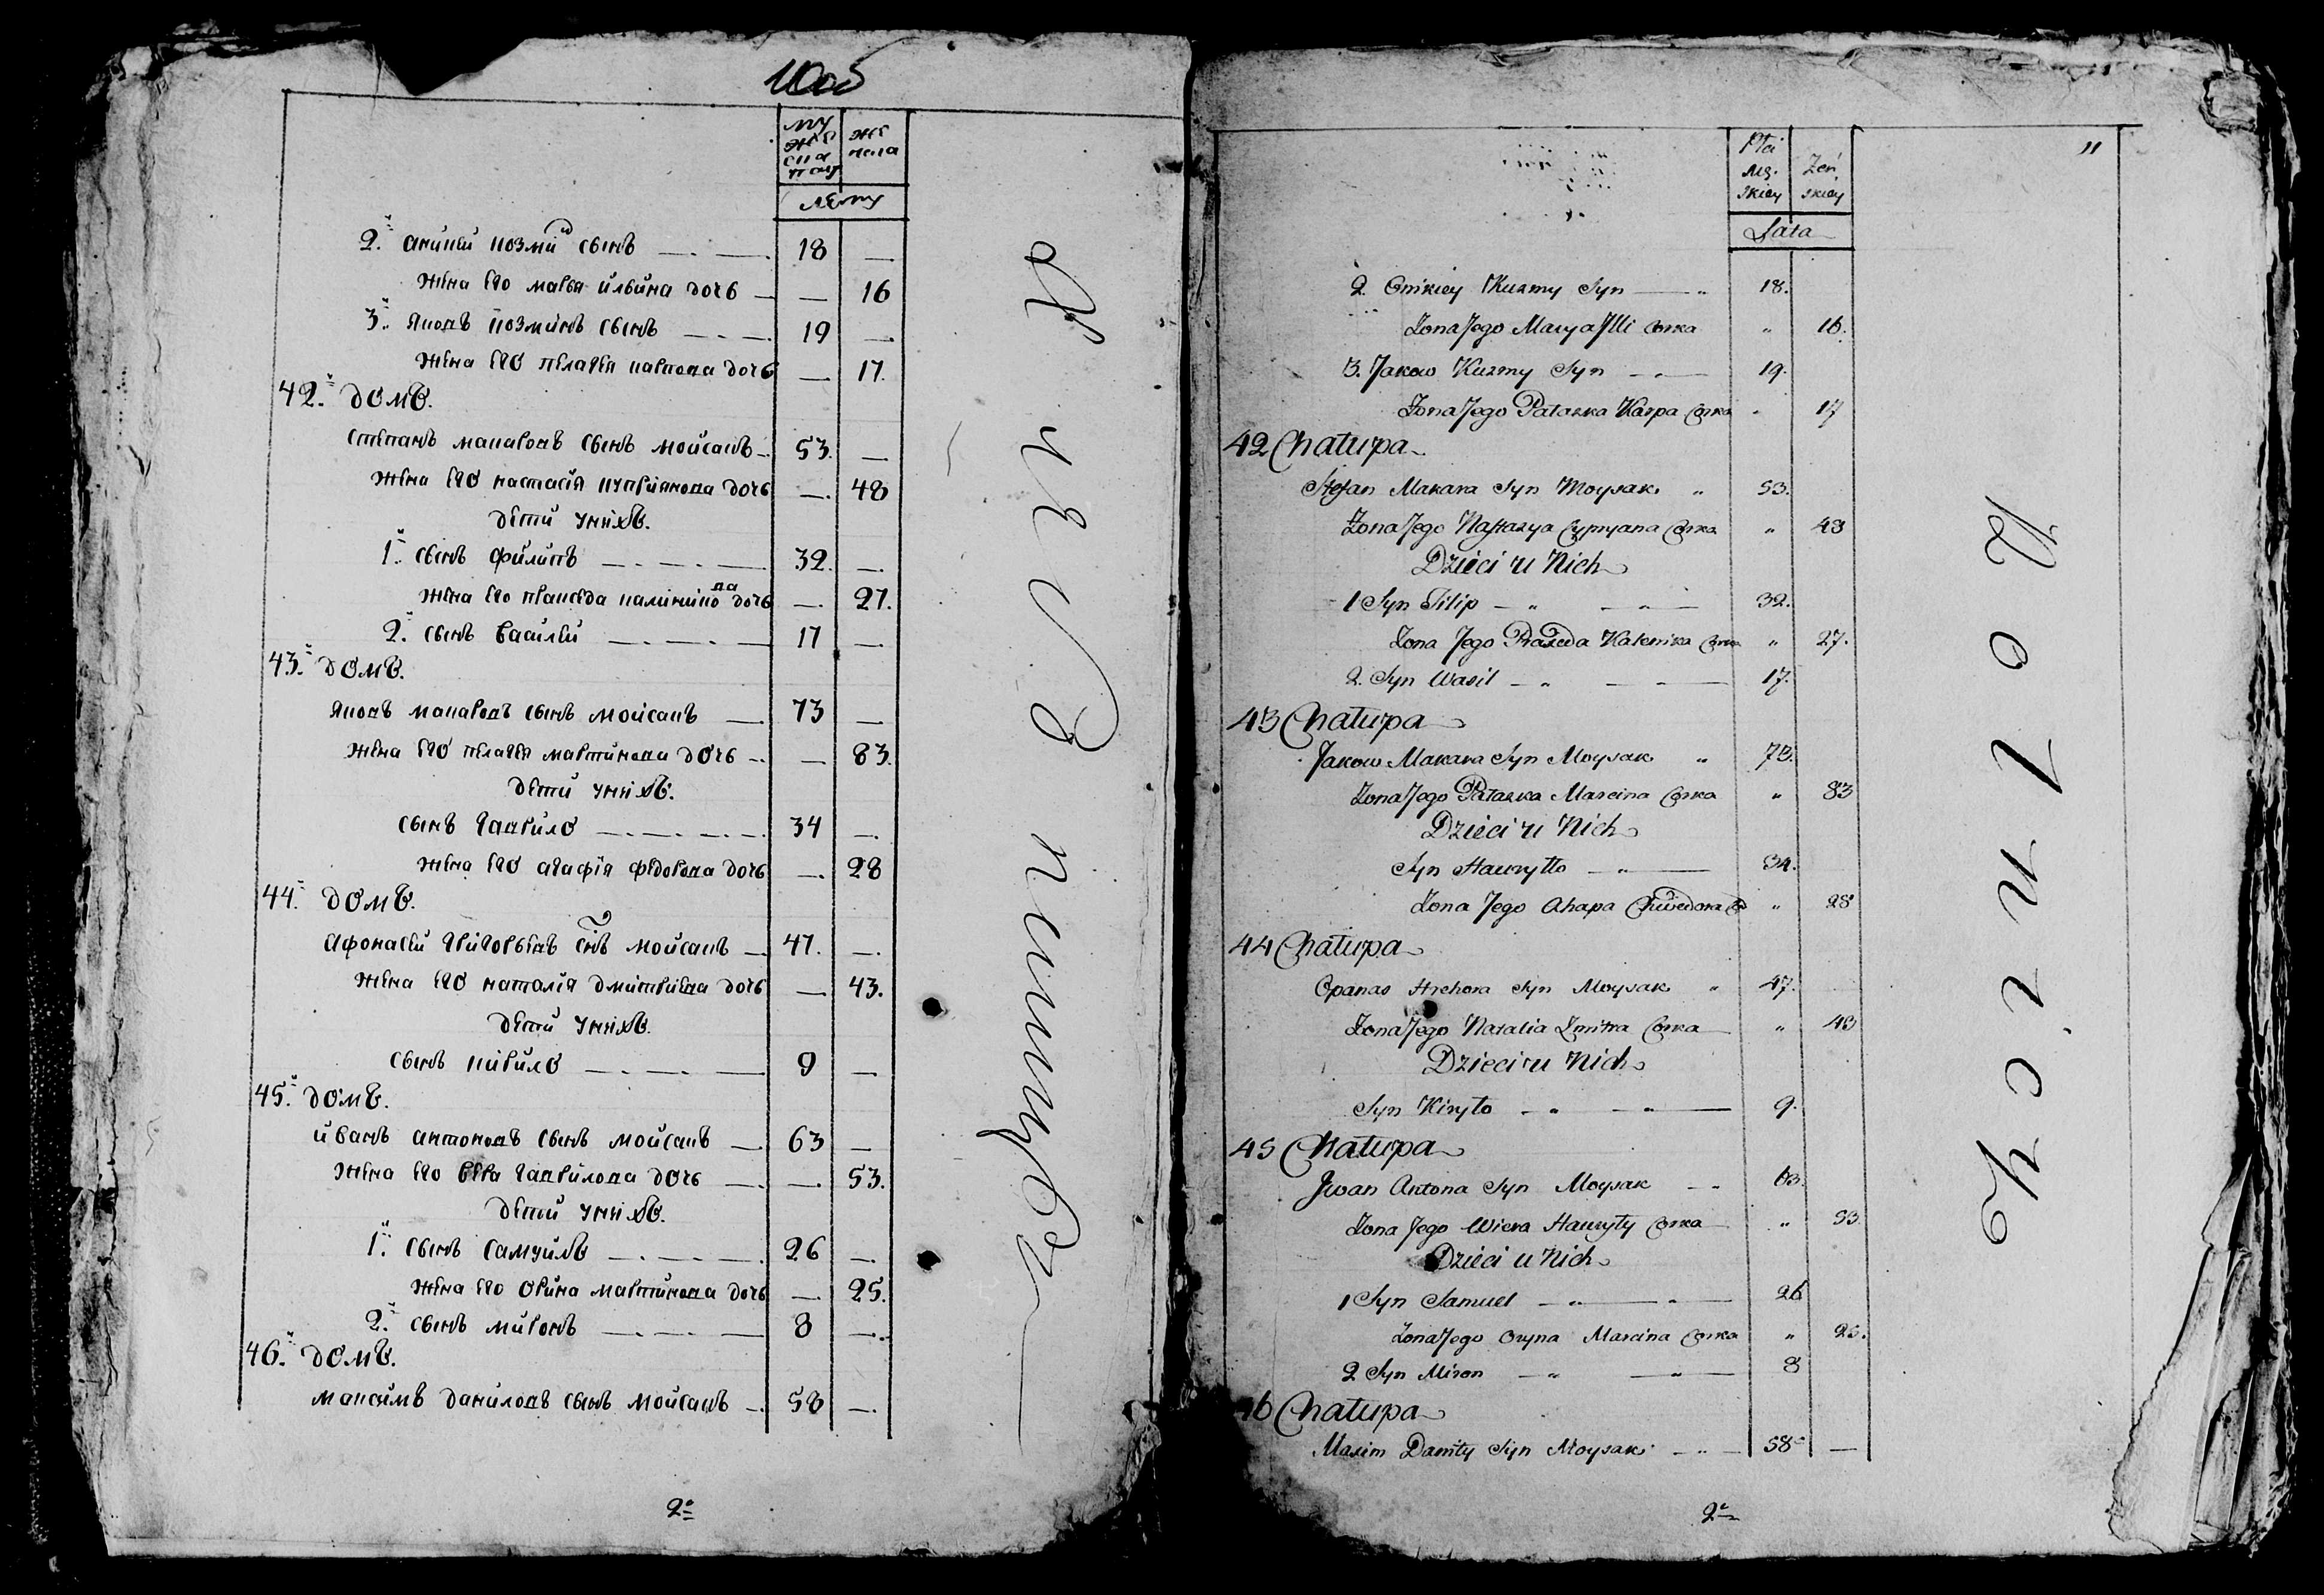 му
жс
ска
полу
жс
нска
лѣту
2.й аникей козмин сынъ — 18 —
жена его марья ильина дочь — — 16
3.й яковъ козминъ сынъ — 19 —
жена его пелагея карпова дочь — 17.
42.й домъ.
степанъ макаровъ сынъ мойсакъ — 53. —
жена его настасія купріянова дочь — 48
дети у нихъ.
1.й сынъ филипъ — 32. —
жена его пракседа калиникова дочь — 27.
2.й сынъ василей — 17 —
43.й домъ.
яковъ макаровъ сынъ мойсакъ — 73 —
жена его пелагея мартинова дочь — 83.
дети у нихъ.
сынъ гаврило — 34 —
жена его агафія федорова дочь — 28
44.й домъ.
афонасей григорьевъ снъ мойсакъ — 47. —
жена его наталія дмитриева дочь — 43.
дети у нихъ.
сынъ кирило — 9 —
45.й домъ.
иванъ антоновъ сынъ мойсакъ — 63 —
жена его вера гаврилова дочь — 53.
дети у нихъ.
1.й сынъ самуилъ — 26 —
жена его орина мартинова дочь — 25.
2.й сынъ миронъ — 8 —
46.й домъ.
максимъ даниловъ сынъ мойсакъ — 58 —
2е
11
Płci
Męz.
skiey
Zeń
skiey
Lata
2. Onikiey Kuzmy Syn — 18.
Zona Jego Marya Illi Corka " 16.
3. Jakow Kuzmy Syn — 19.
Zona Jego Pałaszka Karpa Corka " 17
42 Chałupa
Stefan Makara Syn Moysak " 53.
Zona Jego Nastazya Cypryana Corka " 48
Dzieci u Nich
1 Syn Filip — 32.
Zona Jego Praxeda Kalenika Corka " 27.
2. Syn Wasil — 17.
43 Chałupa
Jakow Makara Syn Moysak " 73.
Zona Jego Pałaszka Marcina Corka " 83
Dzieci u Nich
Syn Hawryłło — 34.
Zona Jego Ahapa Chwiedora C " 28
44 Chałupa
Opanas Hrehora Syn Moysak " 47.
Zona Jego Natalia Zmitra Corka " 43
Dzieci u Nich
Syn Kiryło — 9.
45 Chałupa
Jwan Antona Syn Moysak — 63.
Zona Jego Wiera Hawryły Corka " 53.
Dzieci u Nich
1 Syn Samuel — 26
Zona Jego Oryna Marcina Corka " 25.
2 Syn Miron — 8
46 Chałupa
Maxim Daniły Syn Moysak — 58 —
2e